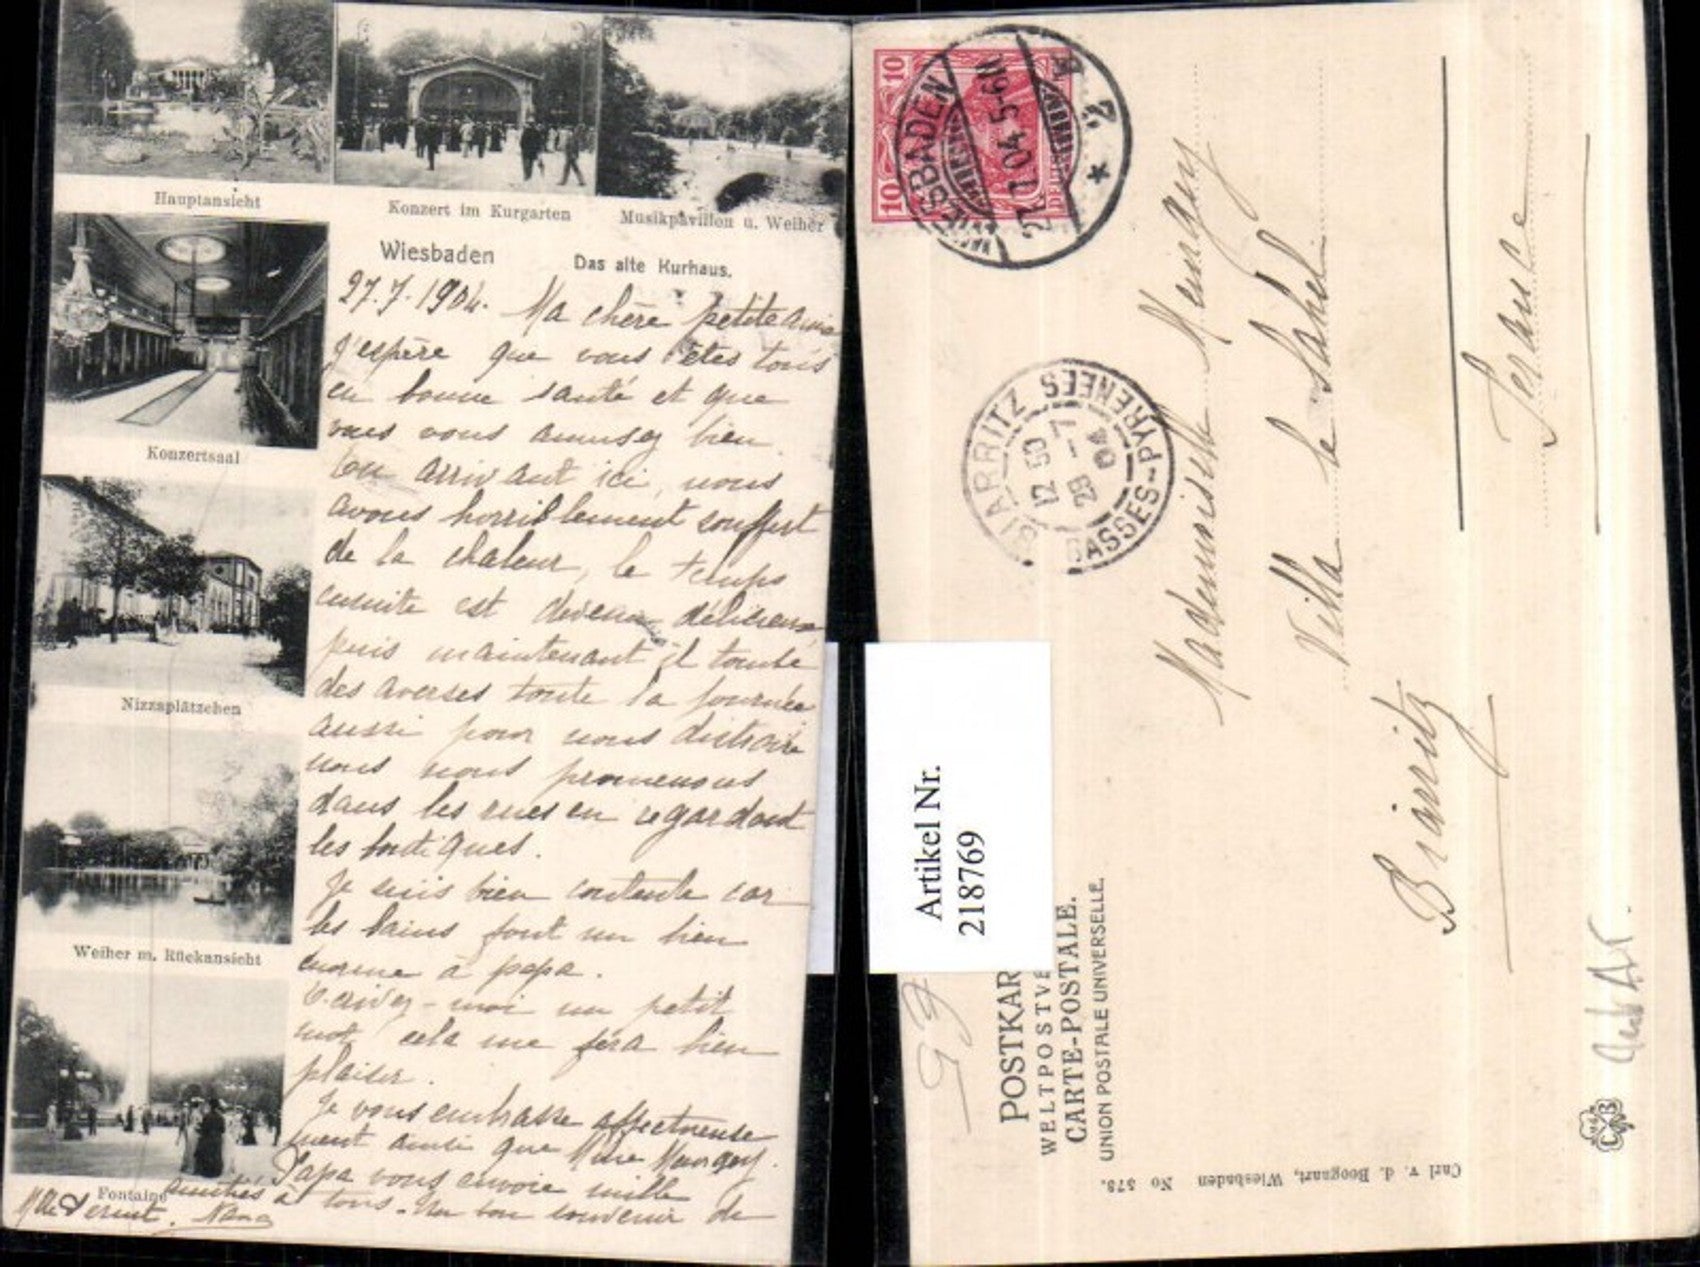 Hauptansicht
Konzert im Kurgarten
Musikpavillon u. Weiher
Konzertsaal
Nizzaplätzchen
Weiher m. Rückansicht
Fontaine
Wiesbaden
Das alte Kurhaus.
27.7.1904. Ma chère petite amie
J'espère que vous êtes tous
en bonne santé et que
vous vous amusez bien
En arrivant ici, nous
avons horriblement souffert
de la chaleur, le temps
ensuite est devenu délicieux
puis maintenant il tombe
des averses toute la journée
aussi pour nous distraire
nous nous promenons
dans les rues en regardant
les boutiques.
Je suis bien contente car
les bains font un bien
énorme à papa.
Ecrivez-moi un petit
mot cela me fera bien
plaisir.
Je vous embrasse affectueuse
ment ainsi que Mme
Papa vous envoie mille
amitiés à tous. Un bon souvenir de
Mlle Nana
10 10
WIESBADEN
27.7.04. 5-6N
* 2
BIARRITZ BASSES-PYRENEES
12 50
28 -7
04
Mademoiselle
Villa le Sahel
Biarritz
France
Artikel Nr.
218769
POSTKAR
WELTPOSTVE
CARTE-POSTALE.
UNION POSTALE UNIVERSELLE.
Carl v. d. Boogaart, Wiesbaden No 378.